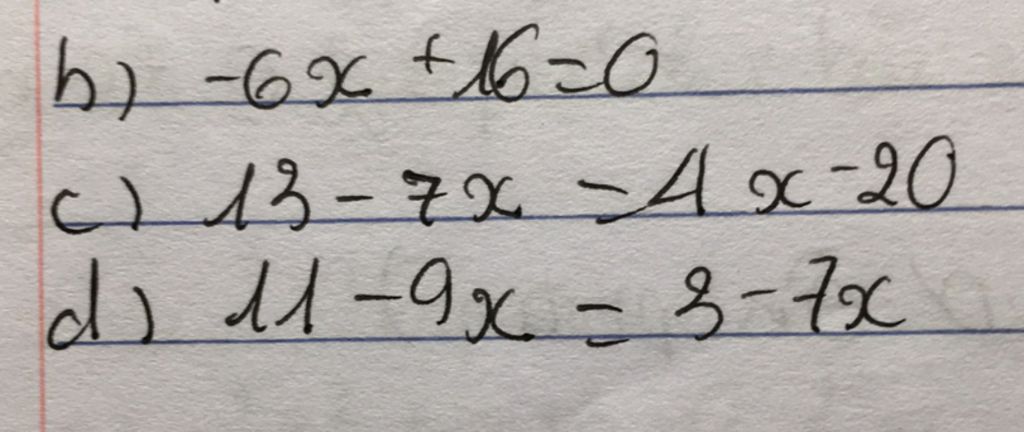 b) -6x + 16 = 0
c) 13 - 7x = 4x - 20
d) 11 - 9x = 3 - 7x